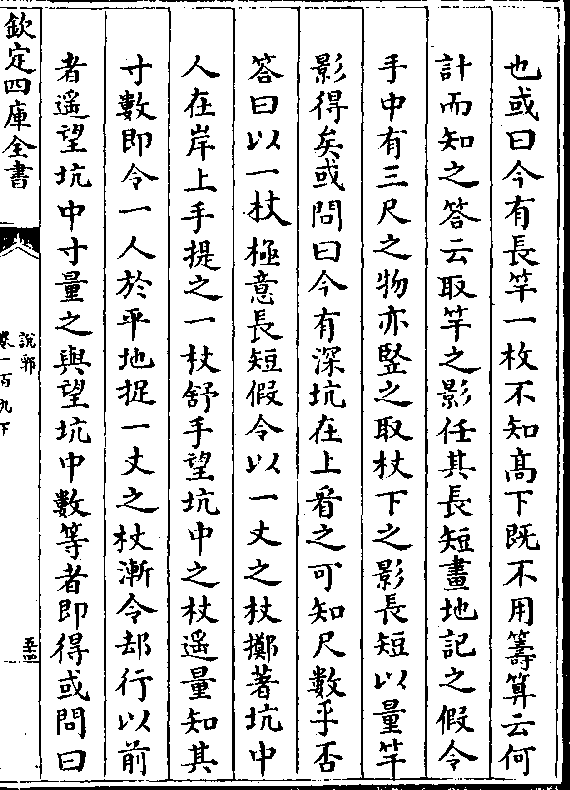 也或曰今有長竿一枚不知髙下既不用籌算云何
計而知之答云取竿之影任其長短畫地記之假令
手中有三尺之物亦竪之取杖下之影長短以量竿
影得矣或問曰今有深坑在上看之可知尺數乎否
答曰以一杖極意長短假令以一丈之杖擲著坑中
人在岸上手提之一杖舒手望坑中之杖遥量知其
寸數即令一人於平地捉一丈之杖漸令却行以前
者遥望坑中寸量之與望坑中數等者即得或問曰
欽定四庫全書
說郛
卷一百九下